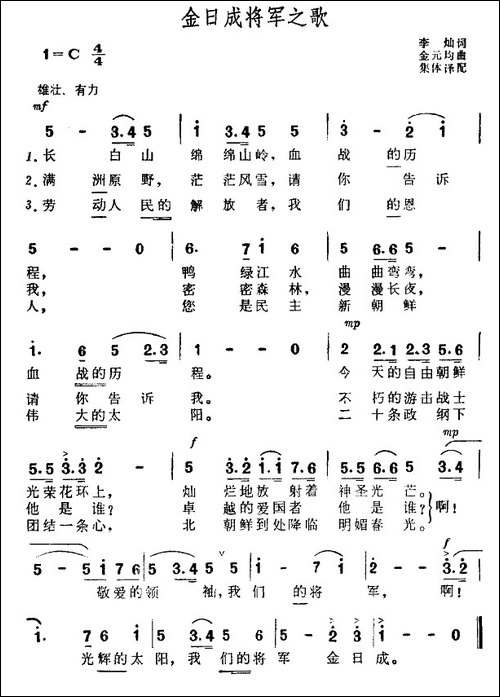 金日成将军之歌
1=C 4/4
李灿词
金元均曲
集体译配
雄壮、有力
mf
5 - 3.4 5 i 3.4 5 5 3 - 2 i
1.长 白山 绵绵山岭，血 战 的历
2.满 洲原 野，茫茫风雪，请 你 告诉
3.劳 动人 民的 解放者，我 们 的恩
5 - - 0 6. 7 i 6 5 6.6 5 -
程， 鸭 绿江水 曲曲弯弯，
我， 密 密森林，漫漫长夜，
人， 您 是民主 新朝鲜
mp
i. 6 5 2.3 i - - 0 2 2.1 2.3 5.6
血 战的历 程。 今 天的自由朝鲜
请 你告诉 我。 不 朽的游击战士
伟 大的太 阳。 二 十条政 纲下
f mp
5.5 3.3 2 - 3.2 i.i 7.6 5 6.6 5 3.4
光荣花环上， 灿 烂地放射着 神圣光 芒。
他是 谁？ 卓 越的爱国者 他是 谁？ 啊！
团结一条心， 北 朝鲜到处降临 明媚春光。
f
5 - 5 i 7 6 5 3.4 5 5 i - 7 i 2 - - 3.2
敬爱的领 袖，我们 的将 军， 啊！
i. 7 6 i 5 - 3.4 5 5 6 5 2 3 i - - 0
光辉的太 阳，我 们的将军 金日成。